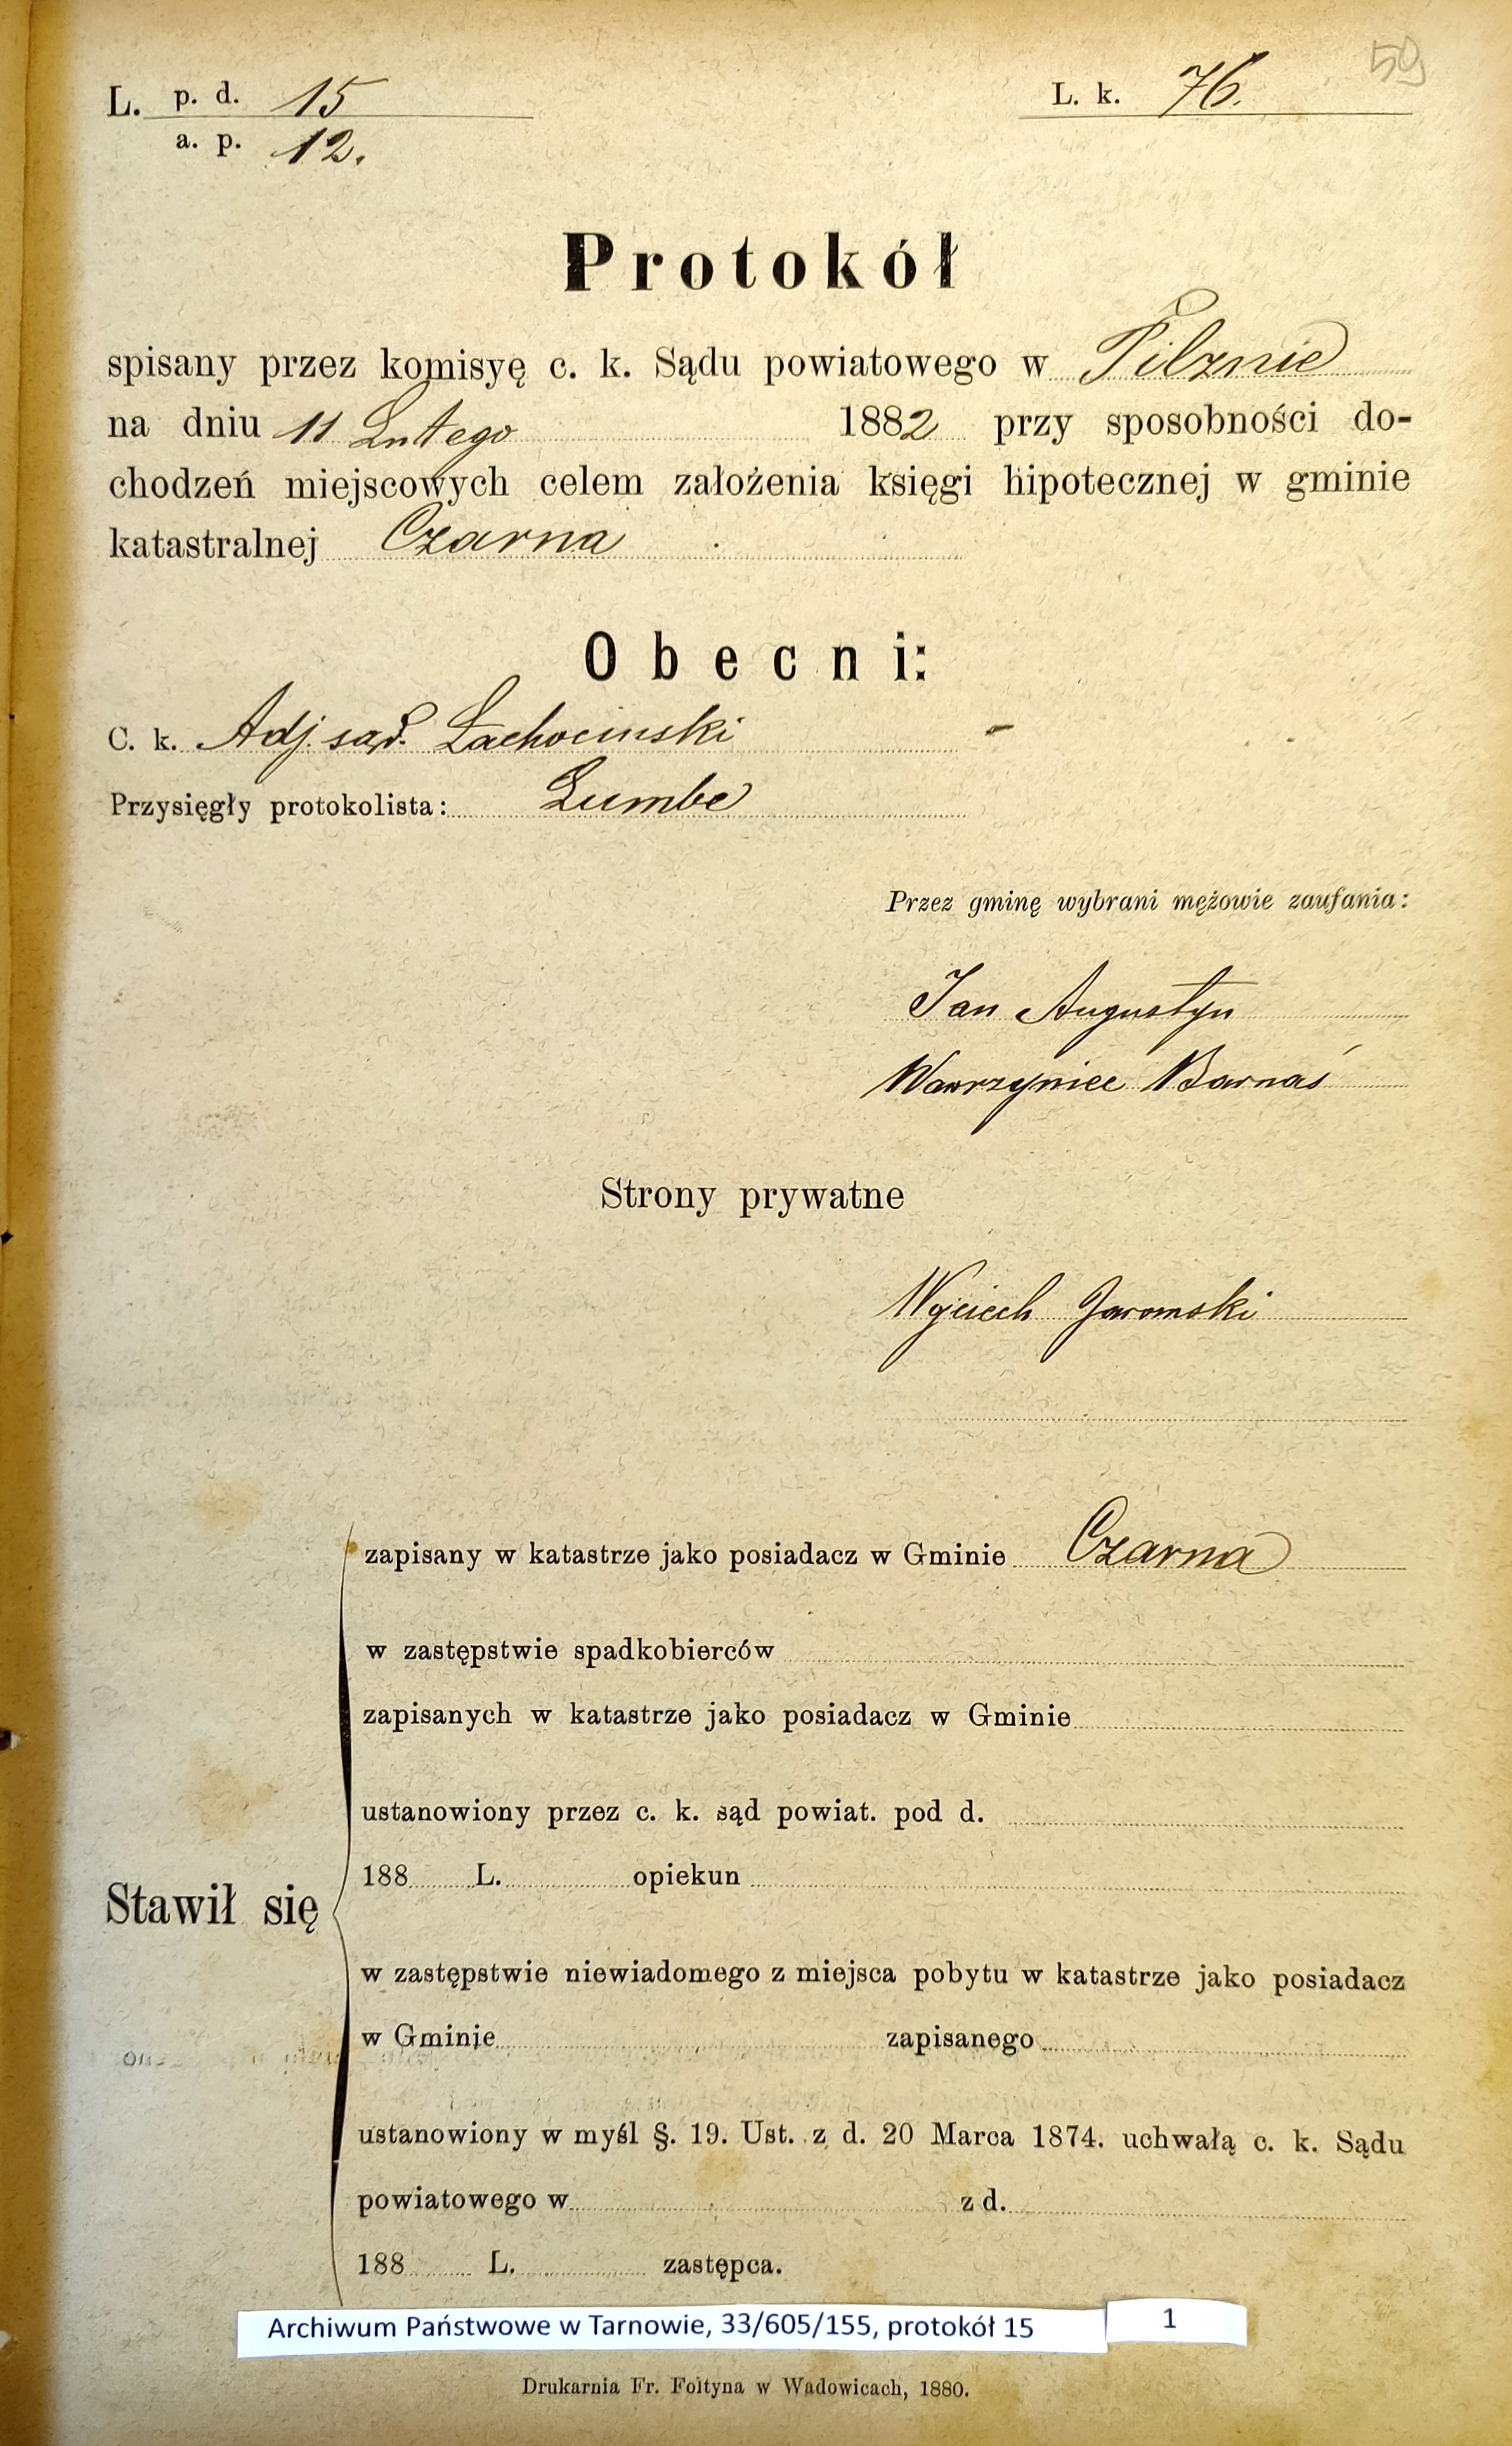 59
L. p. d. 15 L. k. 76.
a. p. 12.
Protokół
spisany przez komisyę c. k. Sądu powiatowego w Pilznie
na dniu 11 Lutego 1882 przy sposobności do-
chodzeń miejscowych celem założenia księgi hipotecznej w gminie
katastralnej Czarna
Obecni:
C. k. Adj. sąd. Lachocinski
Przysięgły protokolista: Lumbe
Przez gminę wybrani mężowie zaufania:
Jan Augustyn
Wawrzyniec Barnaś
Strony prywatne
Wojciech Jaromski
zapisany w katastrze jako posiadacz w Gminie Czarna
w zastępstwie spadkobierców
zapisanych w katastrze jako posiadacz w Gminie
ustanowiony przez c. k. sąd powiat. pod d.
188 L. opiekun
Stawił się
w zastępstwie niewiadomego z miejsca pobytu w katastrze jako posiadacz
w Gminie zapisanego
ustanowiony w myśl §. 19. Ust. z d. 20 Marca 1874. uchwałą c. k. Sądu
powiatowego w z d.
188 L. zastępca.
Archiwum Państwowe w Tarnowie, 33/605/155, protokół 15 1
Drukarnia Fr. Foltyna w Wadowicach, 1880.